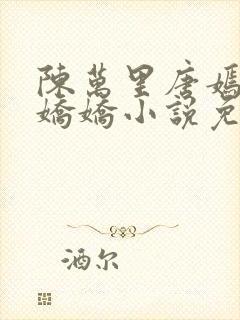 陳萬里唐嫣
嬌嬌小說免
酒尔